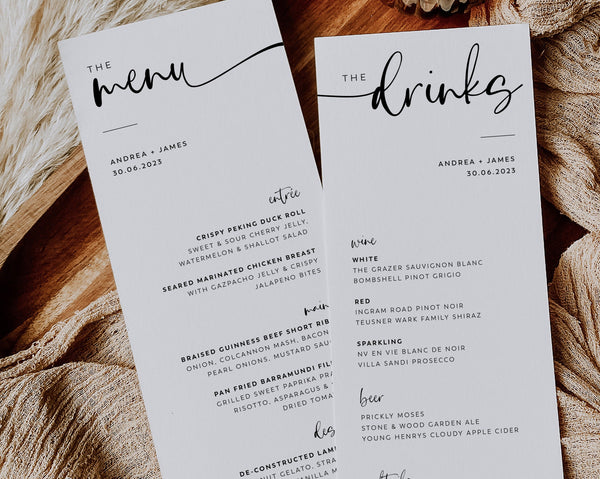 THE
menu
ANDREA + JAMES
30.06.2023
entrée
CRISPY PEKING DUCK ROLL
SWEET & SOUR CHERRY JELLY,
WATERMELON & SHALLOT SALAD
SEARED MARINATED CHICKEN BREAST
WITH GAZPACHO JELLY & CRISPY
JALAPENO BITES
BRAISED GUINNESS BEEF SHORT RIB
ONION, COLCANNON MASH,
PEARL ONIONS, MUSTARD
PAN FRIED BARRAMUNDI
GRILLED SWEET PAPRIKA
RISOTTO, ASPARAGUS &
DRIED
DE-CONSTRUCTED
GELATO,
THE
drinks
ANDREA + JAMES
30.06.2023
wine
WHITE
THE GRAZER SAUVIGNON BLANC
BOMBSHELL PINOT GRIGIO
RED
INGRAM ROAD PINOT NOIR
TEUSNER WARK FAMILY SHIRAZ
SPARKLING
NV EN VIE BLANC DE NOIR
VILLA SANDI PROSECCO
beer
PRICKLY MOSES
STONE & WOOD GARDEN ALE
YOUNG HENRYS CLOUDY APPLE CIDER